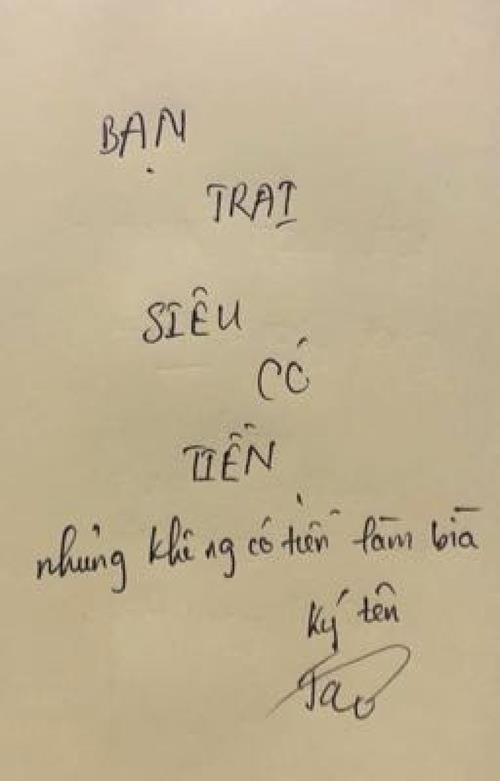 BẠN
TRAI
SIÊU
CÓ
TIỀN
nhưng không có tiền làm bìa
Ký tên
Tao